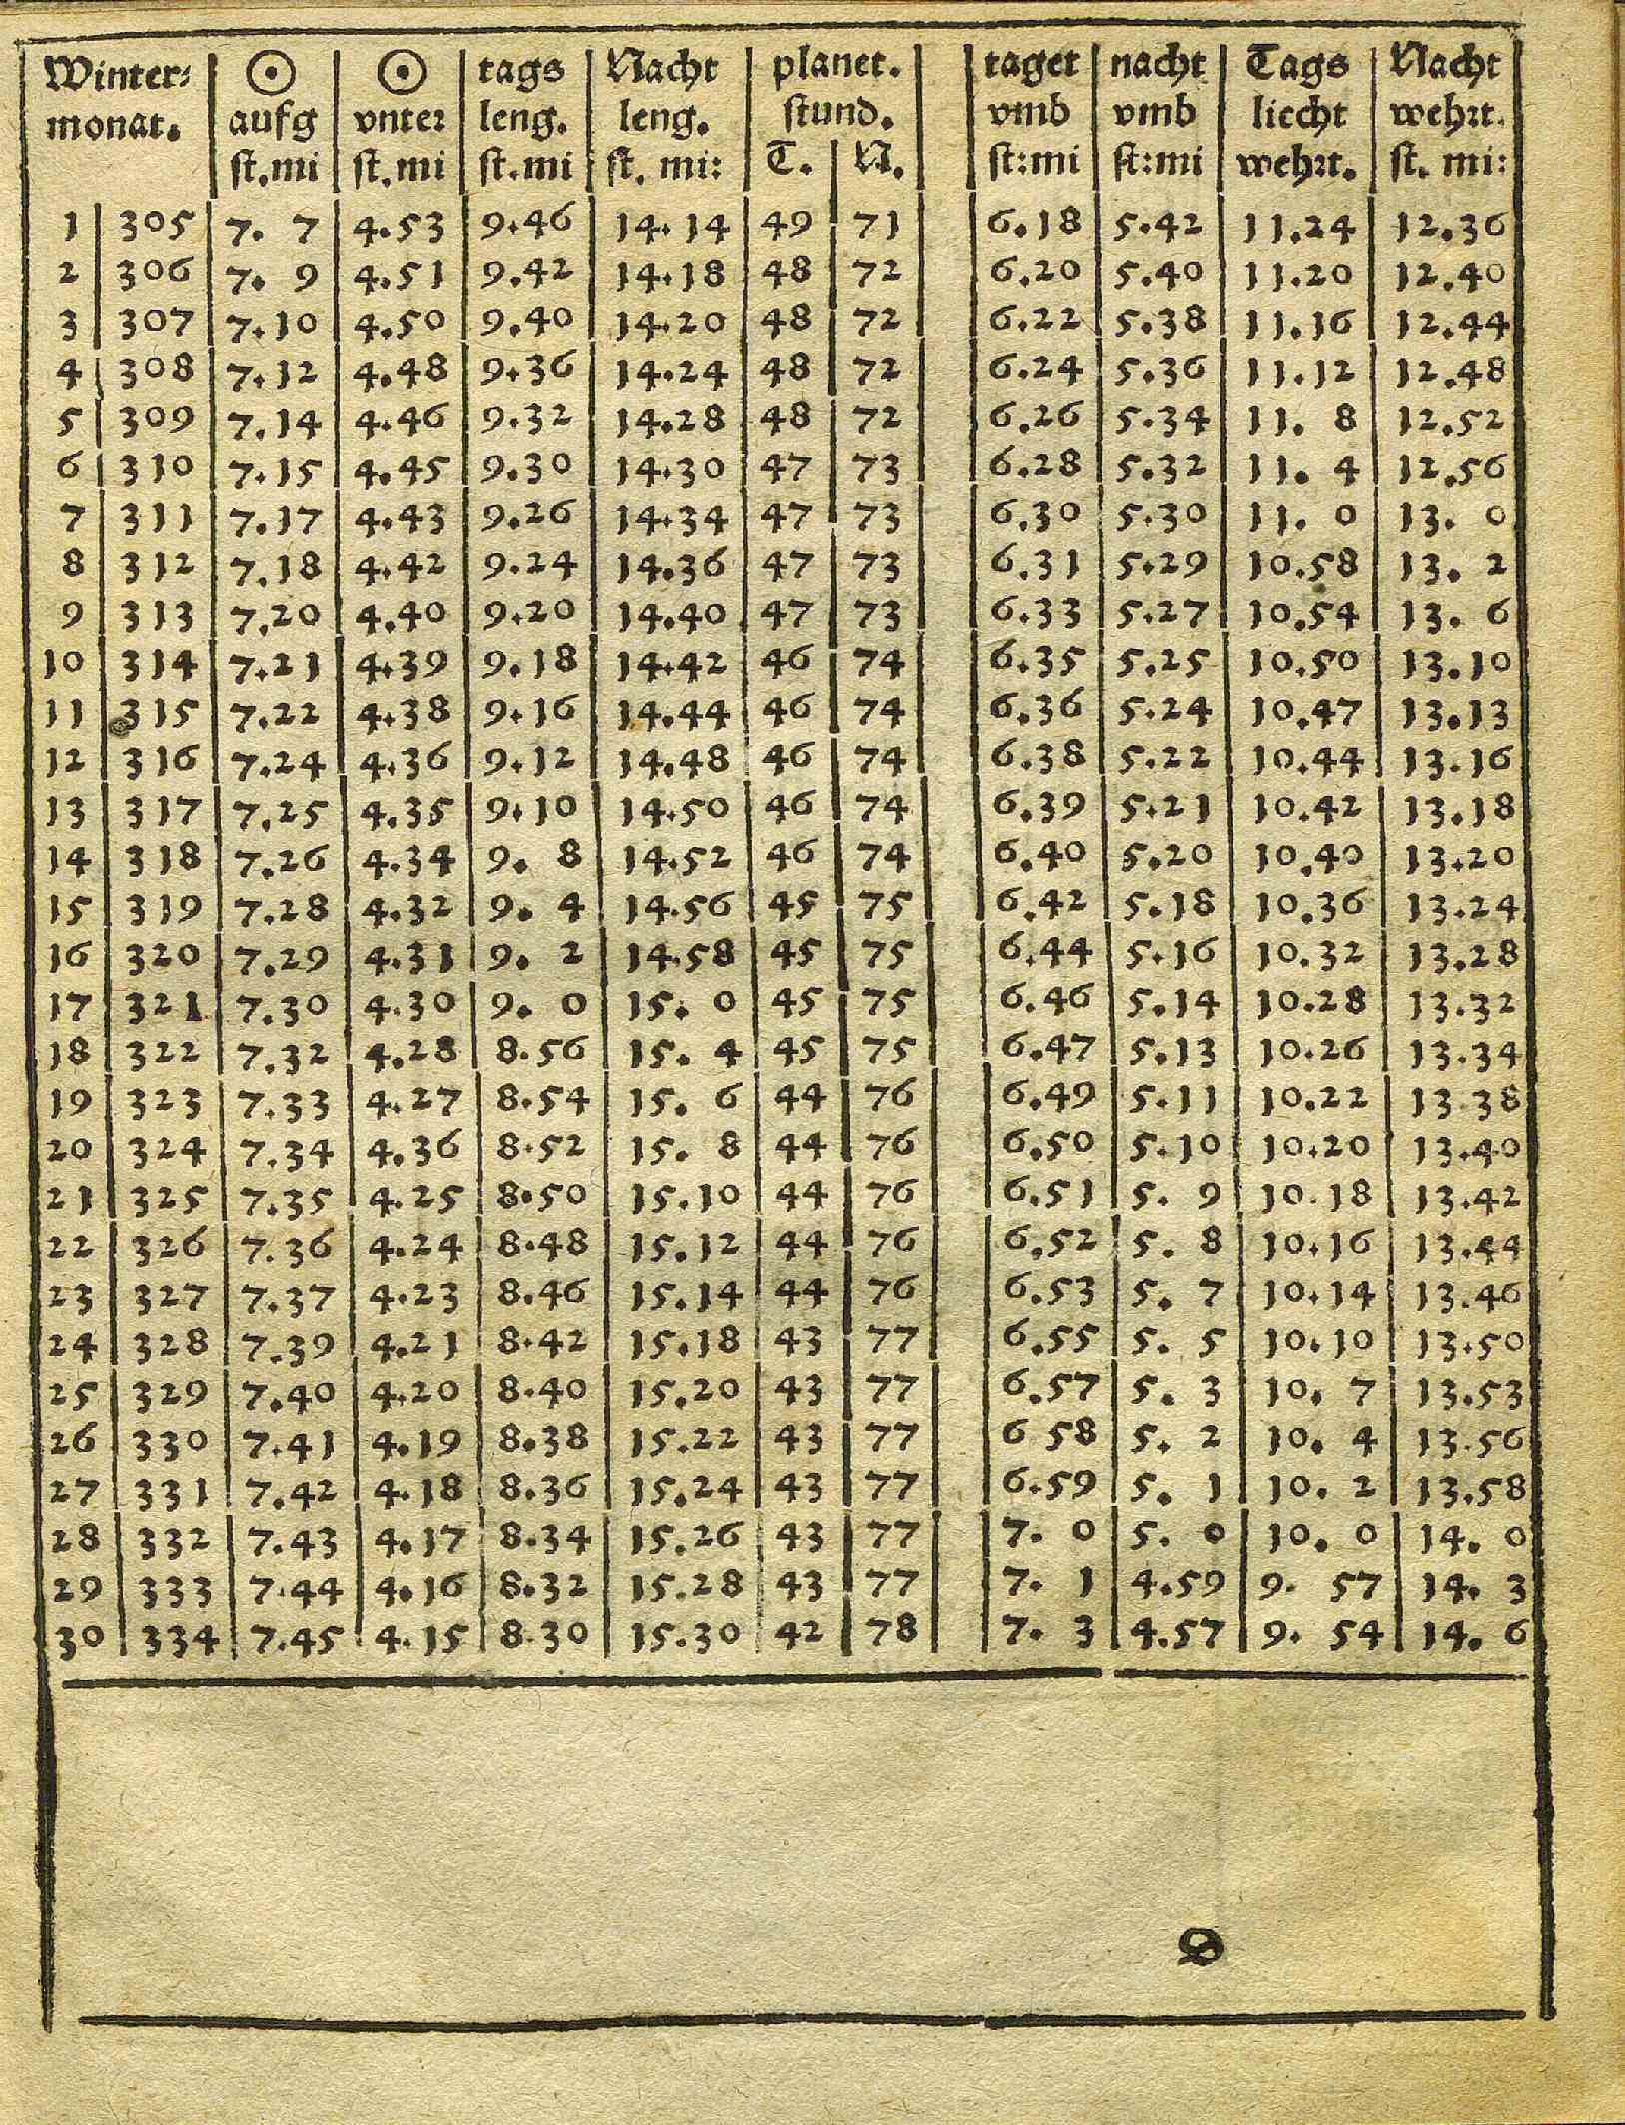 Winter⸗ ☉ ☉ tags Nacht planet. taget nacht Tags Nacht
monat. aufg vnter leng. leng. stund. vmb vmb liecht wehrt.
st.mi st.mi st.mi st. mi: T. N. st:mi st:mi wehrt. st. mi:
1 305 7. 7 4.53 9.46 14.14 49 71 6.18 5.42 11.24 12.36
2 306 7. 9 4.51 9.42 14.18 48 72 6.20 5.40 11.20 12.40
3 307 7.10 4.50 9.40 14.20 48 72 6.22 5.38 11.16 12.44
4 308 7.12 4.48 9.36 14.24 48 72 6.24 5.36 11.12 12.48
5 309 7.14 4.46 9.32 14.28 48 72 6.26 5.34 11. 8 12.52
6 310 7.15 4.45 9.30 14.30 47 73 6.28 5.32 11. 4 12.56
7 311 7.17 4.43 9.26 14.34 47 73 6.30 5.30 11. 0 13. 0
8 312 7.18 4.42 9.24 14.36 47 73 6.31 5.29 10.58 13. 2
9 313 7.20 4.40 9.20 14.40 47 73 6.33 5.27 10.54 13. 6
10 314 7.21 4.39 9.18 14.42 46 74 6.35 5.25 10.50 13.10
11 315 7.22 4.38 9.16 14.44 46 74 6.36 5.24 10.47 13.13
12 316 7.24 4.36 9.12 14.48 46 74 6.38 5.22 10.44 13.16
13 317 7.25 4.35 9.10 14.50 46 74 6.39 5.21 10.42 13.18
14 318 7.26 4.34 9. 8 14.52 46 74 6.40 5.20 10.40 13.20
15 319 7.28 4.32 9. 4 14.56 45 75 6.42 5.18 10.36 13.24
16 320 7.29 4.31 9. 2 14.58 45 75 6.44 5.16 10.32 13.28
17 321 7.30 4.30 9. 0 15. 0 45 75 6.46 5.14 10.28 13.32
18 322 7.32 4.28 8.56 15. 4 45 75 6.47 5.13 10.26 13.34
19 323 7.33 4.27 8.54 15. 6 44 76 6.49 5.11 10.22 13.38
20 324 7.34 4.36 8.52 15. 8 44 76 6.50 5.10 10.20 13.40
21 325 7.35 4.25 8.50 15.10 44 76 6.51 5. 9 10.18 13.42
22 326 7.36 4.24 8.48 15.12 44 76 6.52 5. 8 10.16 13.44
23 327 7.37 4.23 8.46 15.14 44 76 6.53 5. 7 10.14 13.46
24 328 7.39 4.21 8.42 15.18 43 77 6.55 5. 5 10.10 13.50
25 329 7.40 4.20 8.40 15.20 43 77 6.57 5. 3 10. 7 13.53
26 330 7.41 4.19 8.38 15.22 43 77 6 58 5. 2 10. 4 13.56
27 331 7.42 4.18 8.36 15.24 43 77 6.59 5. 1 10. 2 13.58
28 332 7.43 4.17 8.34 15.26 43 77 7. 0 5. 0 10. 0 14. 0
29 333 7.44 4.16 8.32 15.28 43 77 7. 1 4.59 9. 57 14. 3
30 334 7.45 4.15 8.30 15.30 42 78 7. 3 4.57 9. 54 14. 6